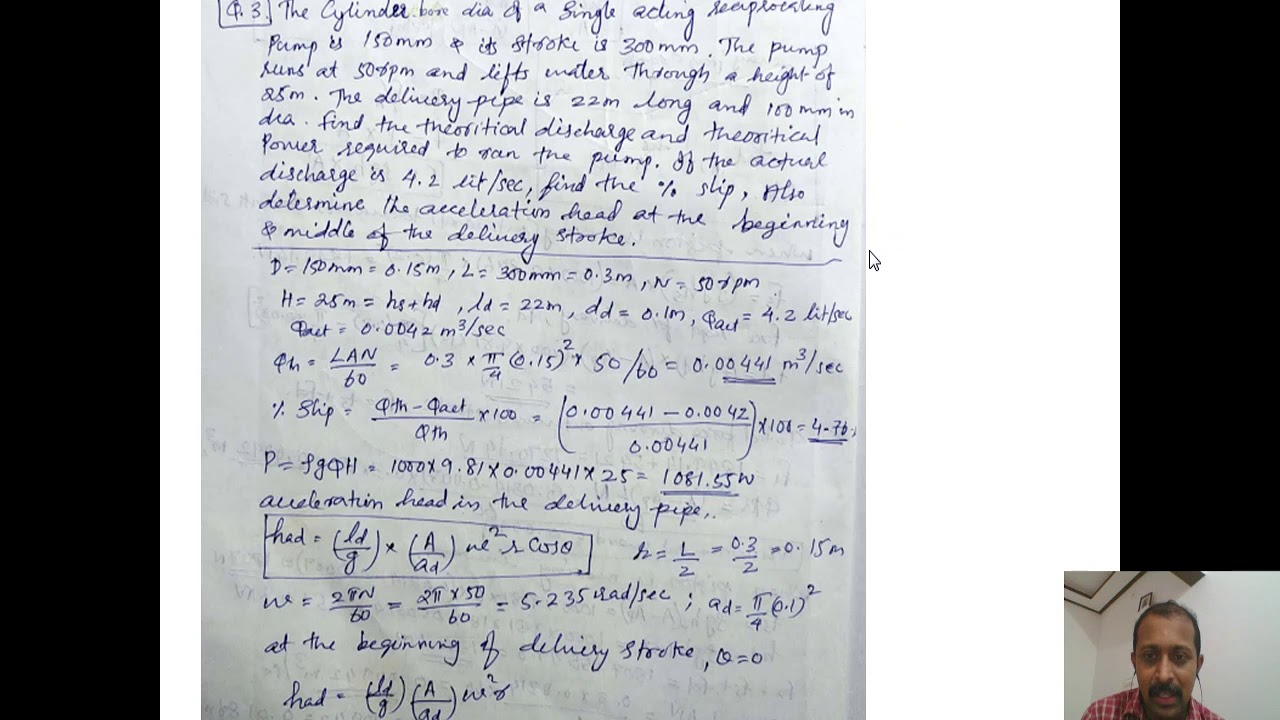 Q.3. The Cylinder bore dia of a Single acting reciprocating
Pump is 150mm & its stroke is 300mm. The pump
runs at 50rpm and lifts water through a height of
25m. The delivery pipe is 22m long and 100mm in
dia. find the theoritical discharge and theoritical
Power required to run the pump. If the actual
discharge is 4.2 lit/sec, find the % slip, Also
determine the acceleration head at the beginning
& middle of the delivery stroke.
D = 150mm = 0.15m, L = 300mm = 0.3m, N = 50rpm
H = 25m = hs + hd, ld = 22m, dd = 0.1m, Qact = 4.2 lit/sec
Qact = 0.0042 m³/sec
Qth = LAN/60 = 0.3 × π/4 (0.15)² × 50/60 = 0.00441 m³/sec
% Slip = (Qth - Qact)/Qth × 100 = ((0.00441 - 0.0042)/0.00441) × 100 = 4.76
P = ρgQH = 1000 × 9.81 × 0.00441 × 25 = 1081.55W
acceleration head in the delivery pipe,
had = (ld/g) × (A/ad) ω² r Cosθ r = L/2 = 0.3/2 = 0.15m
ω = 2πN/60 = 2π × 50/60 = 5.235 rad/sec ; ad = π/4 (0.1)²
at the beginning of delivery stroke, θ = 0
had = (ld/g) (A/ad) ω² r